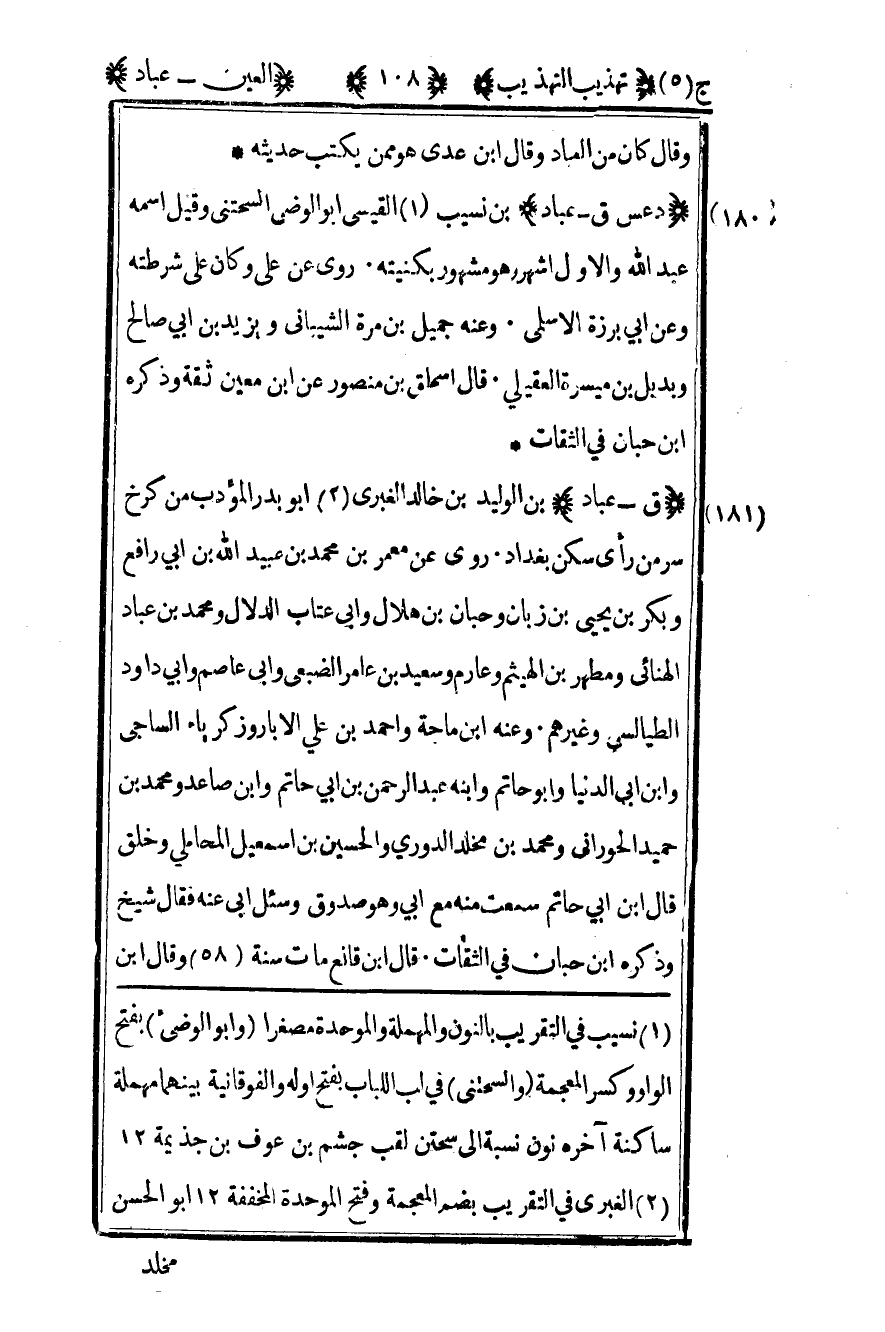 ج(٥) ﴿تهذيب التهذيب﴾ ﴿١٠٨﴾ ﴿العين – عباد﴾
وقال كان من العباد وقال ابن عدى هو ممن يكتب حديثه *
(١٨٠) ﴿دعس ق – عباد﴾ بن نسيب (١) القيسى ابو الوضى السحتنى وقيل اسمه
عبد الله والاول اشهر وهو مشهور بكنيته · روى عن على وكان على شرطته
وعن ابي برزة الاسلمى · وعنه جميل بن مرة الشيبانى و يزيد بن ابي صالح
وبديل بن ميسرة العقيلي · قال اسحاق بن منصور عن ابن معين ثقة وذكره
ابن حبان في الثقات *
(١٨١) ﴿ق – عباد﴾ بن الوليد بن خالد الغبرى (٢) ابو بدر المؤدب من كرخ
سر من رأى سكن بغداد · روى عن معمر بن محمد بن عبيد الله بن ابي رافع
وبكر بن يحيى بن زبان وحبان بن هلال وابى عتاب الدلال ومحمد بن عباد
الهنائى ومطهر بن الهيثم وعارم وسعيد بن عامر الضبعى وابى عاصم وابي داود
الطيالسي وغيرهم · وعنه ابن ماجة واحمد بن علي الابار وزكرياء الساجى
وابن ابي الدنيا وابو حاتم وابنه عبد الرحمن بن ابي حاتم وابن صاعد ومحمد بن
حميد الحورانى ومحمد بن مخلد الدوري والحسين بن اسمعيل المحاملي وخلق
قال ابن ابي حاتم سمعت منه مع ابي وهو صدوق وسئل ابى عنه فقال شيخ
وذكره ابن حبان في الثقات · قال ابن قانع مات سنة (٥٨) وقال ابن
(١) نسيب في التقريب بالنون والمهملة والموحدة مصغرا (وابو الوضىء) بفتح
الواو وكسر المعجمة (والسحتنى) في لب اللباب بفتح اوله والفوقانية بينهما مهملة
ساكنة آخره نون نسبة الى سحتن لقب جشم بن عوف بن جذيمة ١٢
(٢) الغبرى في التقريب بضم المعجمة وفتح الموحدة المخففة ١٢ ابو الحسن
مخلد